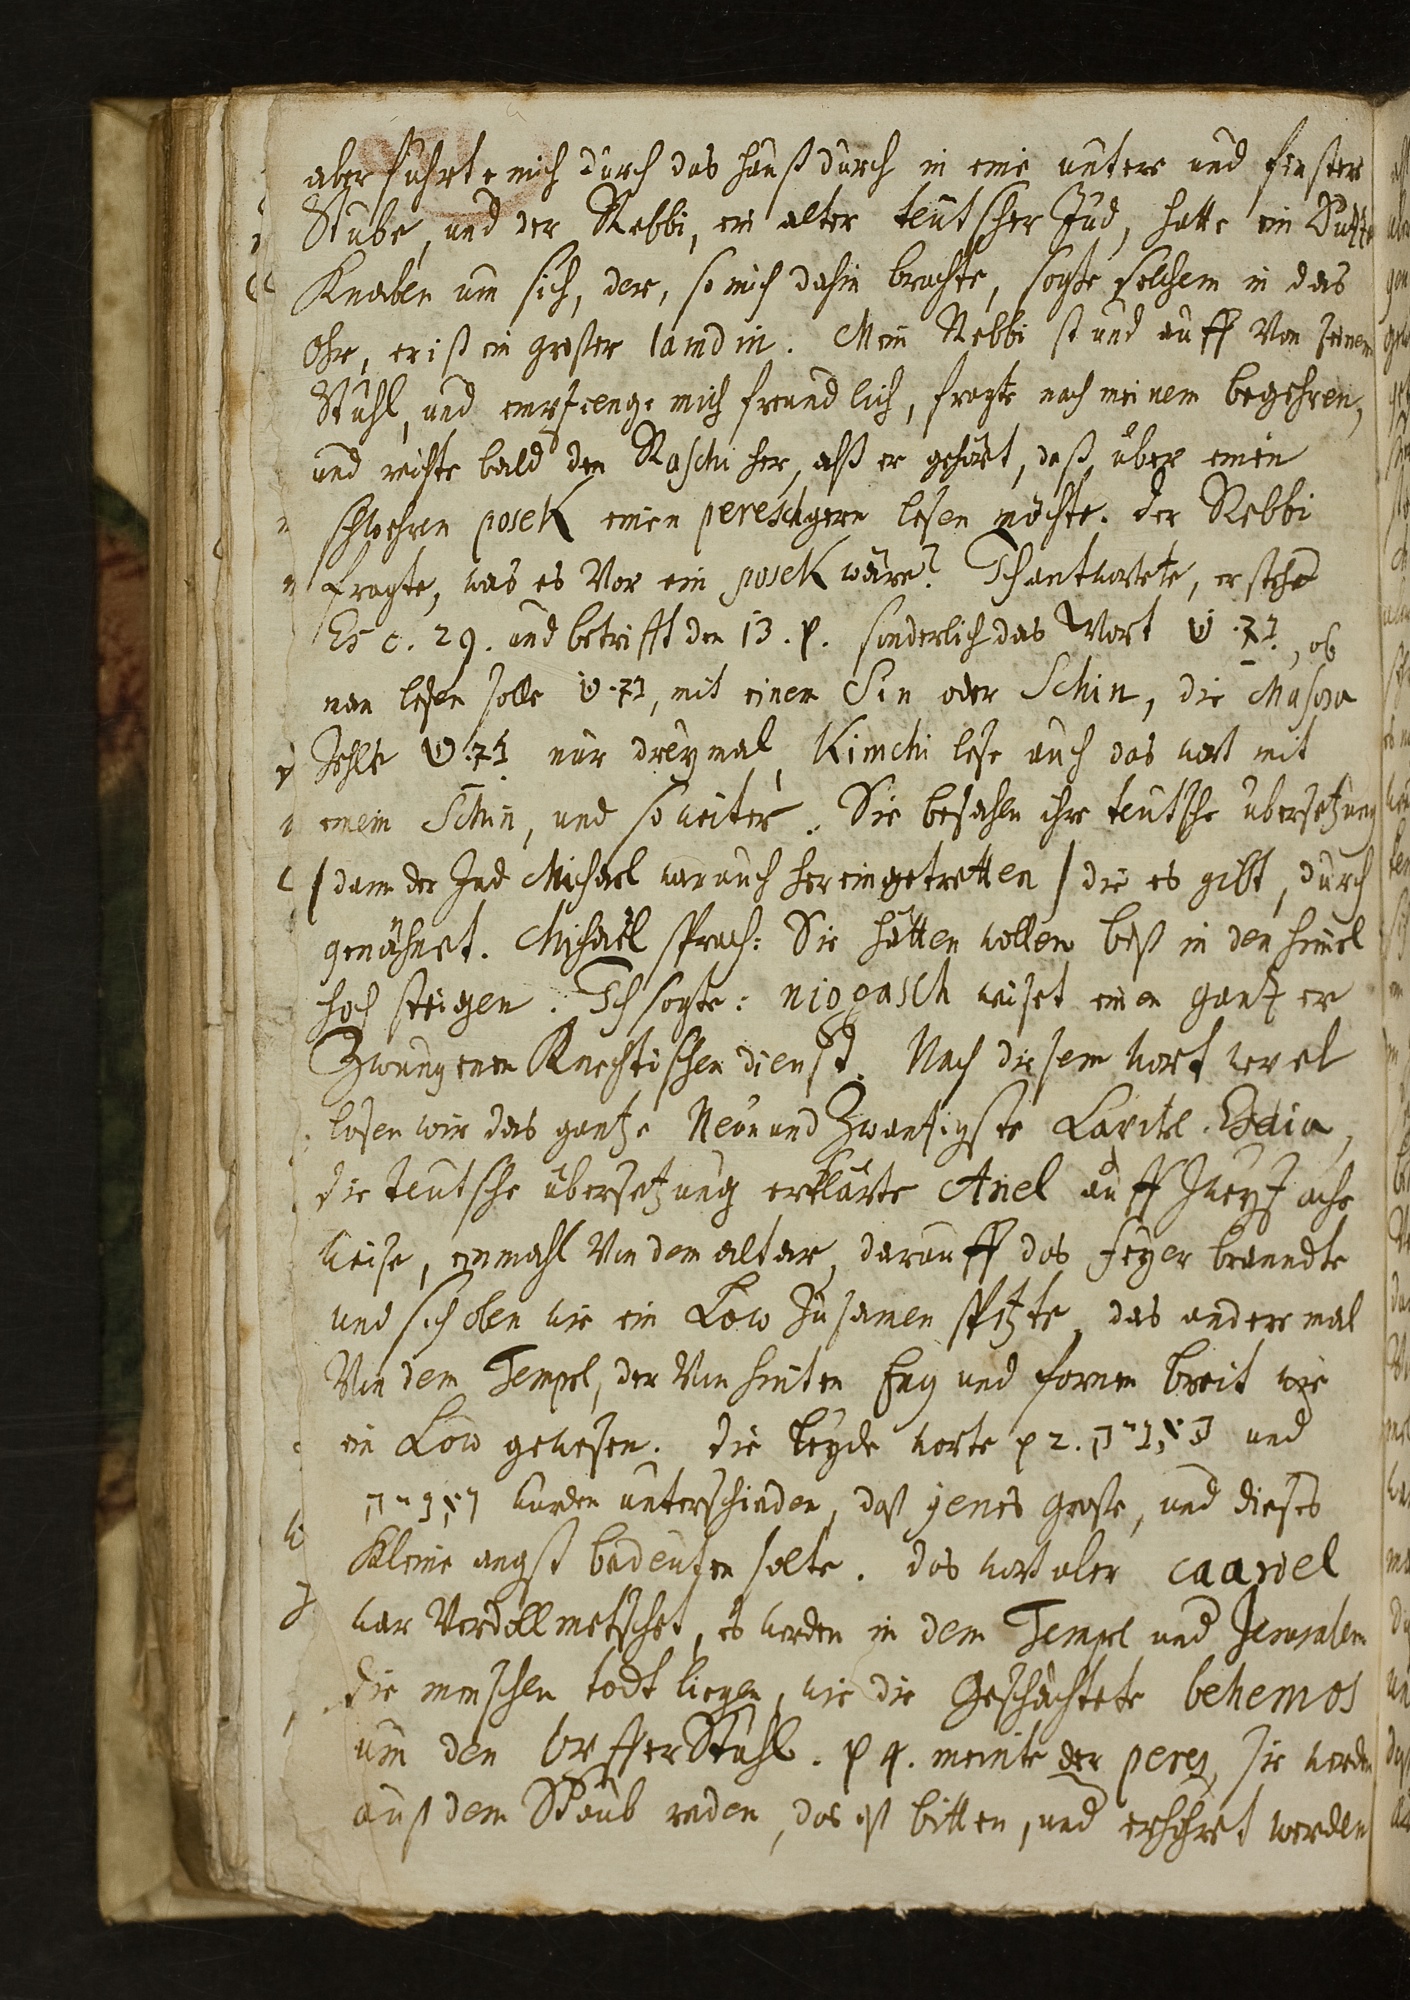 aber fuhrte mich durch das hauß durch in eine untere und finster
Stube, und der Rebbi, ein alter teutscher Jud, hatte ein Dutzt
Knaben um sich, der, so mich dahin brachte, sagte solchem in das
Ohr, er ist ein großer lamdin. Mein Rebbi stund auff von seinem
Stuhl, und empfienge mich freundlich, fragte nach meinem begehren,
und reichte bald den Raschi her, alß er gehört, daß über einen
schwehren posek einen peresch gern lesen möchte. der Rebbi
fragte, was es vor ein posek wäre? Ich antwortete, er stehe
Es c. 29. und betrifft den 13. p. sonderlich das Wort נִגַּשׁ, ob
man lesen solle נִגַּשׂ, mit einem Sin oder Schin, die Masora
zehlte נִגַּשׂ nur dreymal, Kimchi lese auch das wort mit
einem Schin, und so weiter. Sie besahen ihre teutsche übersetzung
/ dann der Jud Michael war auch hereingetretten / die es gibt, durch
genähnet. Michaël sprach: Sie hätten wollen biß in den himel
hoch steigen. Ich sagte: niggasch weiset einen gantz er
Zwungenen Knechtischen dienst. Nach diesem wort
lasen wir das gantze Neun und Zwantzigste Capitel Esaia,
die teutsche übersetzung erklärte Ariel auff zweyfache
weise, einmahl von dem altar, darauff das feyer brandte
und sich oben wie ein Löw zusamen spitzte, das andere mal
Von dem Tempel, der von hinten Eng und fornen breit wie
ein Löw gewesen. die beyde worte p 2. תַאֲנִיָּה und
וַאֲנִיָּה wurden unterschieden, daß jenes große, und dieses
Kleine angst bedeuten solte. das wort aber caariel
war Verdollmetschet, es werden in dem Tempel und Jerusalem
die menschen todt liegen, wie die Geschächtete behemos
um den Opffer Stuhl. p 4. meinte der peres, sie werden
auß dem Staub reden, das ist bitten, und erhöret werden